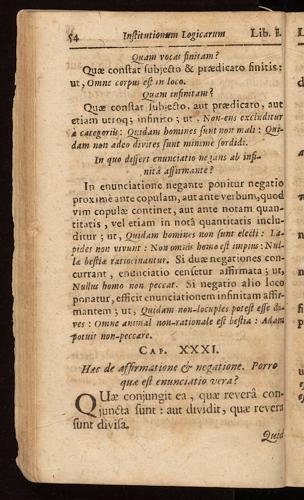 54 Institutionum Logicarum Lib. I.
Quam vocas finitam?
Quæ constat subjecto & prædicato finitis:
ut, Omne corpus est in loco.
Quam infinitam?
Quæ constat subjecto, aut prædicato, aut
etiam utroq; infinito; ut, Non-ens excinditur
à categoriis: Quidam homines sunt non mali: Qui-
dam non adeo divites sunt minime sordidi.
In quo differt enunciatio negans ab infi-
nitâ affirmante?
In enunciatione negante ponitur negatio
proxime ante copulam, aut ante verbum, quod
vim copulæ continet, aut ante notam quan-
titatis, vel etiam in notâ quantitatis inclu-
ditur; ut, Quidam homines non sunt electi: La-
pides non vivunt: Non omnis homo est impius: Nul-
læ bestiæ ratiocinantur. Si duæ negationes con-
currant, enunciatio censetur affirmata; ut,
Nullus homo non peccat. Si negatio alio loco
ponatur, efficit enunciationem infinitam affir-
mantem; ut, Quidam non-locuples potest esse di-
ves: Omne animal non-rationale est bestia: Adam
potuit non-peccare.
CAP. XXXI.
Hæc de affirmatione & negatione. Porro
quæ est enunciatio vera?
QUæ conjungit ea, quæ reverâ con-
juncta sunt: aut dividit, quæ reverâ
sunt divisa.
Quid